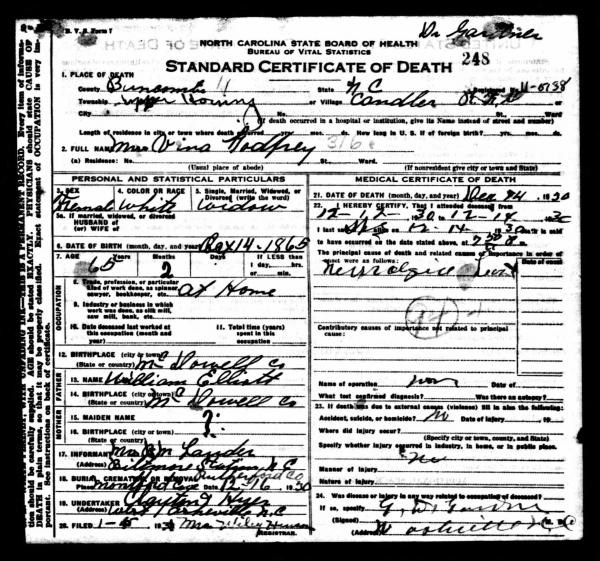 Dr Gardner
N. C. B. V. S. Form 7
NORTH CAROLINA STATE BOARD OF HEALTH
BUREAU OF VITAL STATISTICS
248
STANDARD CERTIFICATE OF DEATH
1. PLACE OF DEATH
County Buncombe State N C Registered No.
Township Upper Hominy or Village Candler R.F.D.
City No. St. Ward.
(If death occurred in a hospital or institution, give its Name instead of street and number)
Length of residence in city or town where death occurred yrs. mos. ds. How long in U. S. if of foreign birth? yrs. mos. ds.
2. FULL NAME Mrs Vina Godfrey 316
(a) Residence: No. St. Ward.
(Usual place of abode) (If nonresident give city or town and State)
PERSONAL AND STATISTICAL PARTICULARS
3. SEX 4. COLOR OR RACE 5. Single, Married, Widowed, or Divorced (write the word)
Female White Widow
5a. If married, widowed, or divorced
HUSBAND of
(or) WIFE of
6. DATE OF BIRTH (month, day, and year) 14-1865
7. AGE Years Months Days If LESS than
65 2 1 day, hrs.
or min.
OCCUPATION
8. Trade, profession, or particular
kind of work done, as spinner,
sawyer, bookkeeper, etc. at Home
9. Industry or business in which
work was done, as silk mill,
saw mill, bank, etc.
10. Date deceased last worked at
this occupation (month and
year)
11. Total time (years)
spent in this
occupation
12. BIRTHPLACE (city or town)
(State or country) McDowell Co
FATHER
13. NAME William Elliott
14. BIRTHPLACE (city or town)
(State or country) McDowell Co
MOTHER
15. MAIDEN NAME
?
16. BIRTHPLACE (city or town)
(State or country)
17. INFORMANT Mrs Lander
(Address) Biltmore Station, N.C
18. BURIAL, CREMATION OR REMOVAL Rutherford Co
Place Date 12-16 1930
19. UNDERTAKER Clayton Hyer
(Address) West Asheville N.C
20. FILED 1-5 Mrs Wiley
REGISTRAR.
MEDICAL CERTIFICATE OF DEATH
21. DATE OF DEATH (month, day, and year) Dec 14 1930
22. I HEREBY CERTIFY, That I attended deceased from
12-12 1930 to 12-14 1930
I last saw alive on 12-14 1930 death is said
to have occurred on the date stated above, at
The principal cause of death and related causes of importance in order of
onset were as follows: Date of onset
Neuralgia
Contributory causes of importance not related to principal
cause:
Name of operation Date of
What test confirmed diagnosis? Was there an autopsy?
23. If death was due to external causes (violence) fill in also the following:
Accident, suicide, or homicide? No Date of injury 19
Where did injury occur?
(Specify city or town, county, and State)
Specify whether injury occurred in industry, in home, or in public place.
No
Manner of injury
Nature of injury
24. Was disease or injury in any way related to occupation of deceased?
If so, specify
(Signed) G. W. M. D.
W Asheville N C